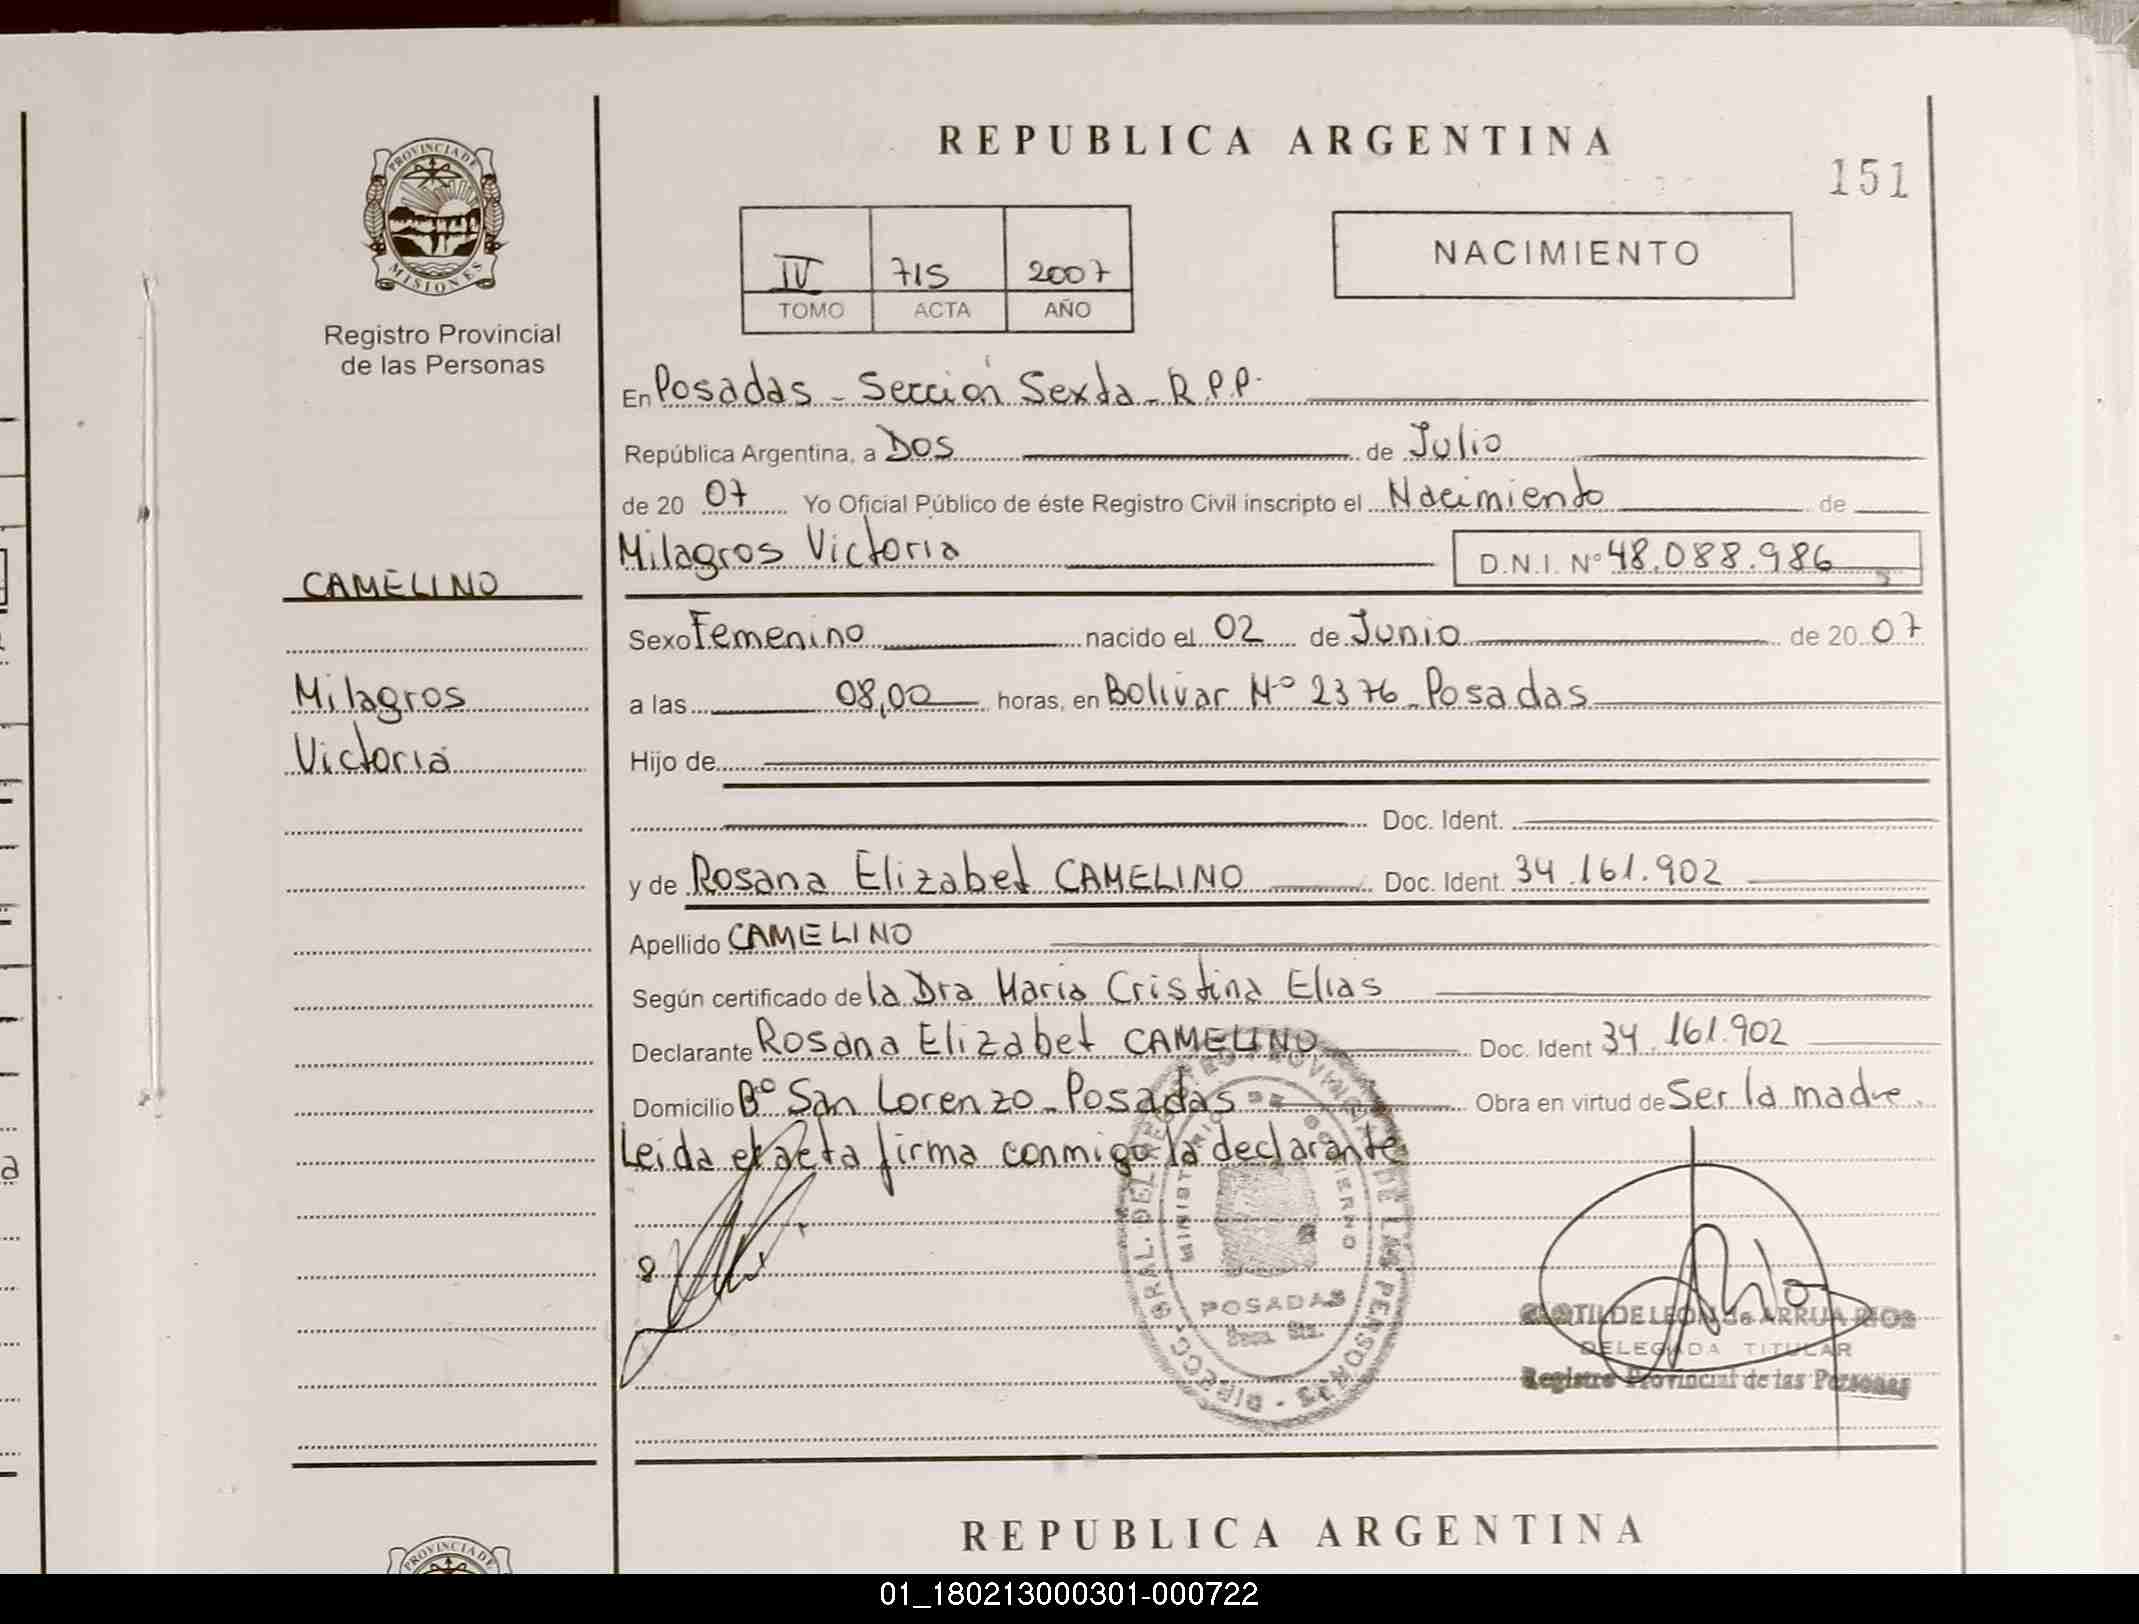 REPUBLICA ARGENTINA
151
PROVINCIA DE
MISIONES
Registro Provincial
de las Personas
IV 715 2007
TOMO ACTA AÑO
NACIMIENTO
En Posadas - Sección Sexta - R.P.P.
República Argentina, a Dos de Julio
de 20 07 Yo Oficial Público de éste Registro Civil inscripto el Nacimiento de
Milagros Victoria D.N.I. Nº 48.088.986
CAMELINO
Sexo Femenino nacido el 02 de Junio de 20 07
Milagros
a las 08,00 horas, en Bolivar Nº 2376 - Posadas
Victoria
Hijo de
Doc. Ident.
y de Rosana Elizabet CAMELINO Doc. Ident. 34.161.902
Apellido CAMELINO
Según certificado de la Dra Maria Cristina Elias
Declarante Rosana Elizabet CAMELINO Doc. Ident 34.161.902
Domicilio Bº San Lorenzo - Posadas Obra en virtud de Ser la madre.
Leida el acta firma conmigo la declarante
DIRECC. GRAL. DEL REGISTRO PROVINCIAL DE LAS PERSONAS
MINISTERIO DE GOBIERNO
POSADAS
CLOTILDE LEON de ARRUA RIOS
DELEGADA TITULAR
Registro Provincial de las Personas
REPUBLICA ARGENTINA
PROVINCIA DE
01_180213000301-000722